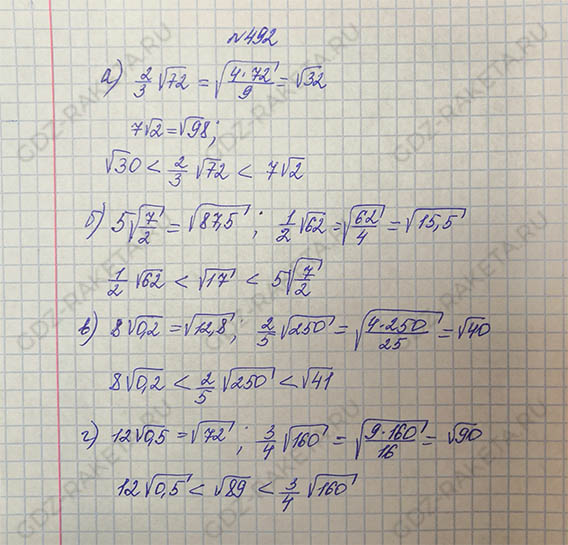 №492
а) 2/3 √72 = √(4·72/9) = √32
7√2 = √98;
√30 < 2/3 √72 < 7√2
б) 5√(7/2) = √87,5; 1/2 √62 = √(62/4) = √15,5
1/2 √62 < √17 < 5√(7/2)
в) 8√0,2 = √12,8; 2/5 √250 = √(4·250/25) = √40
8√0,2 < 2/5 √250 < √41
г) 12√0,5 = √72; 3/4 √160 = √(9·160/16) = √90
12√0,5 < √89 < 3/4 √160
GDZ-RAKETA.RU